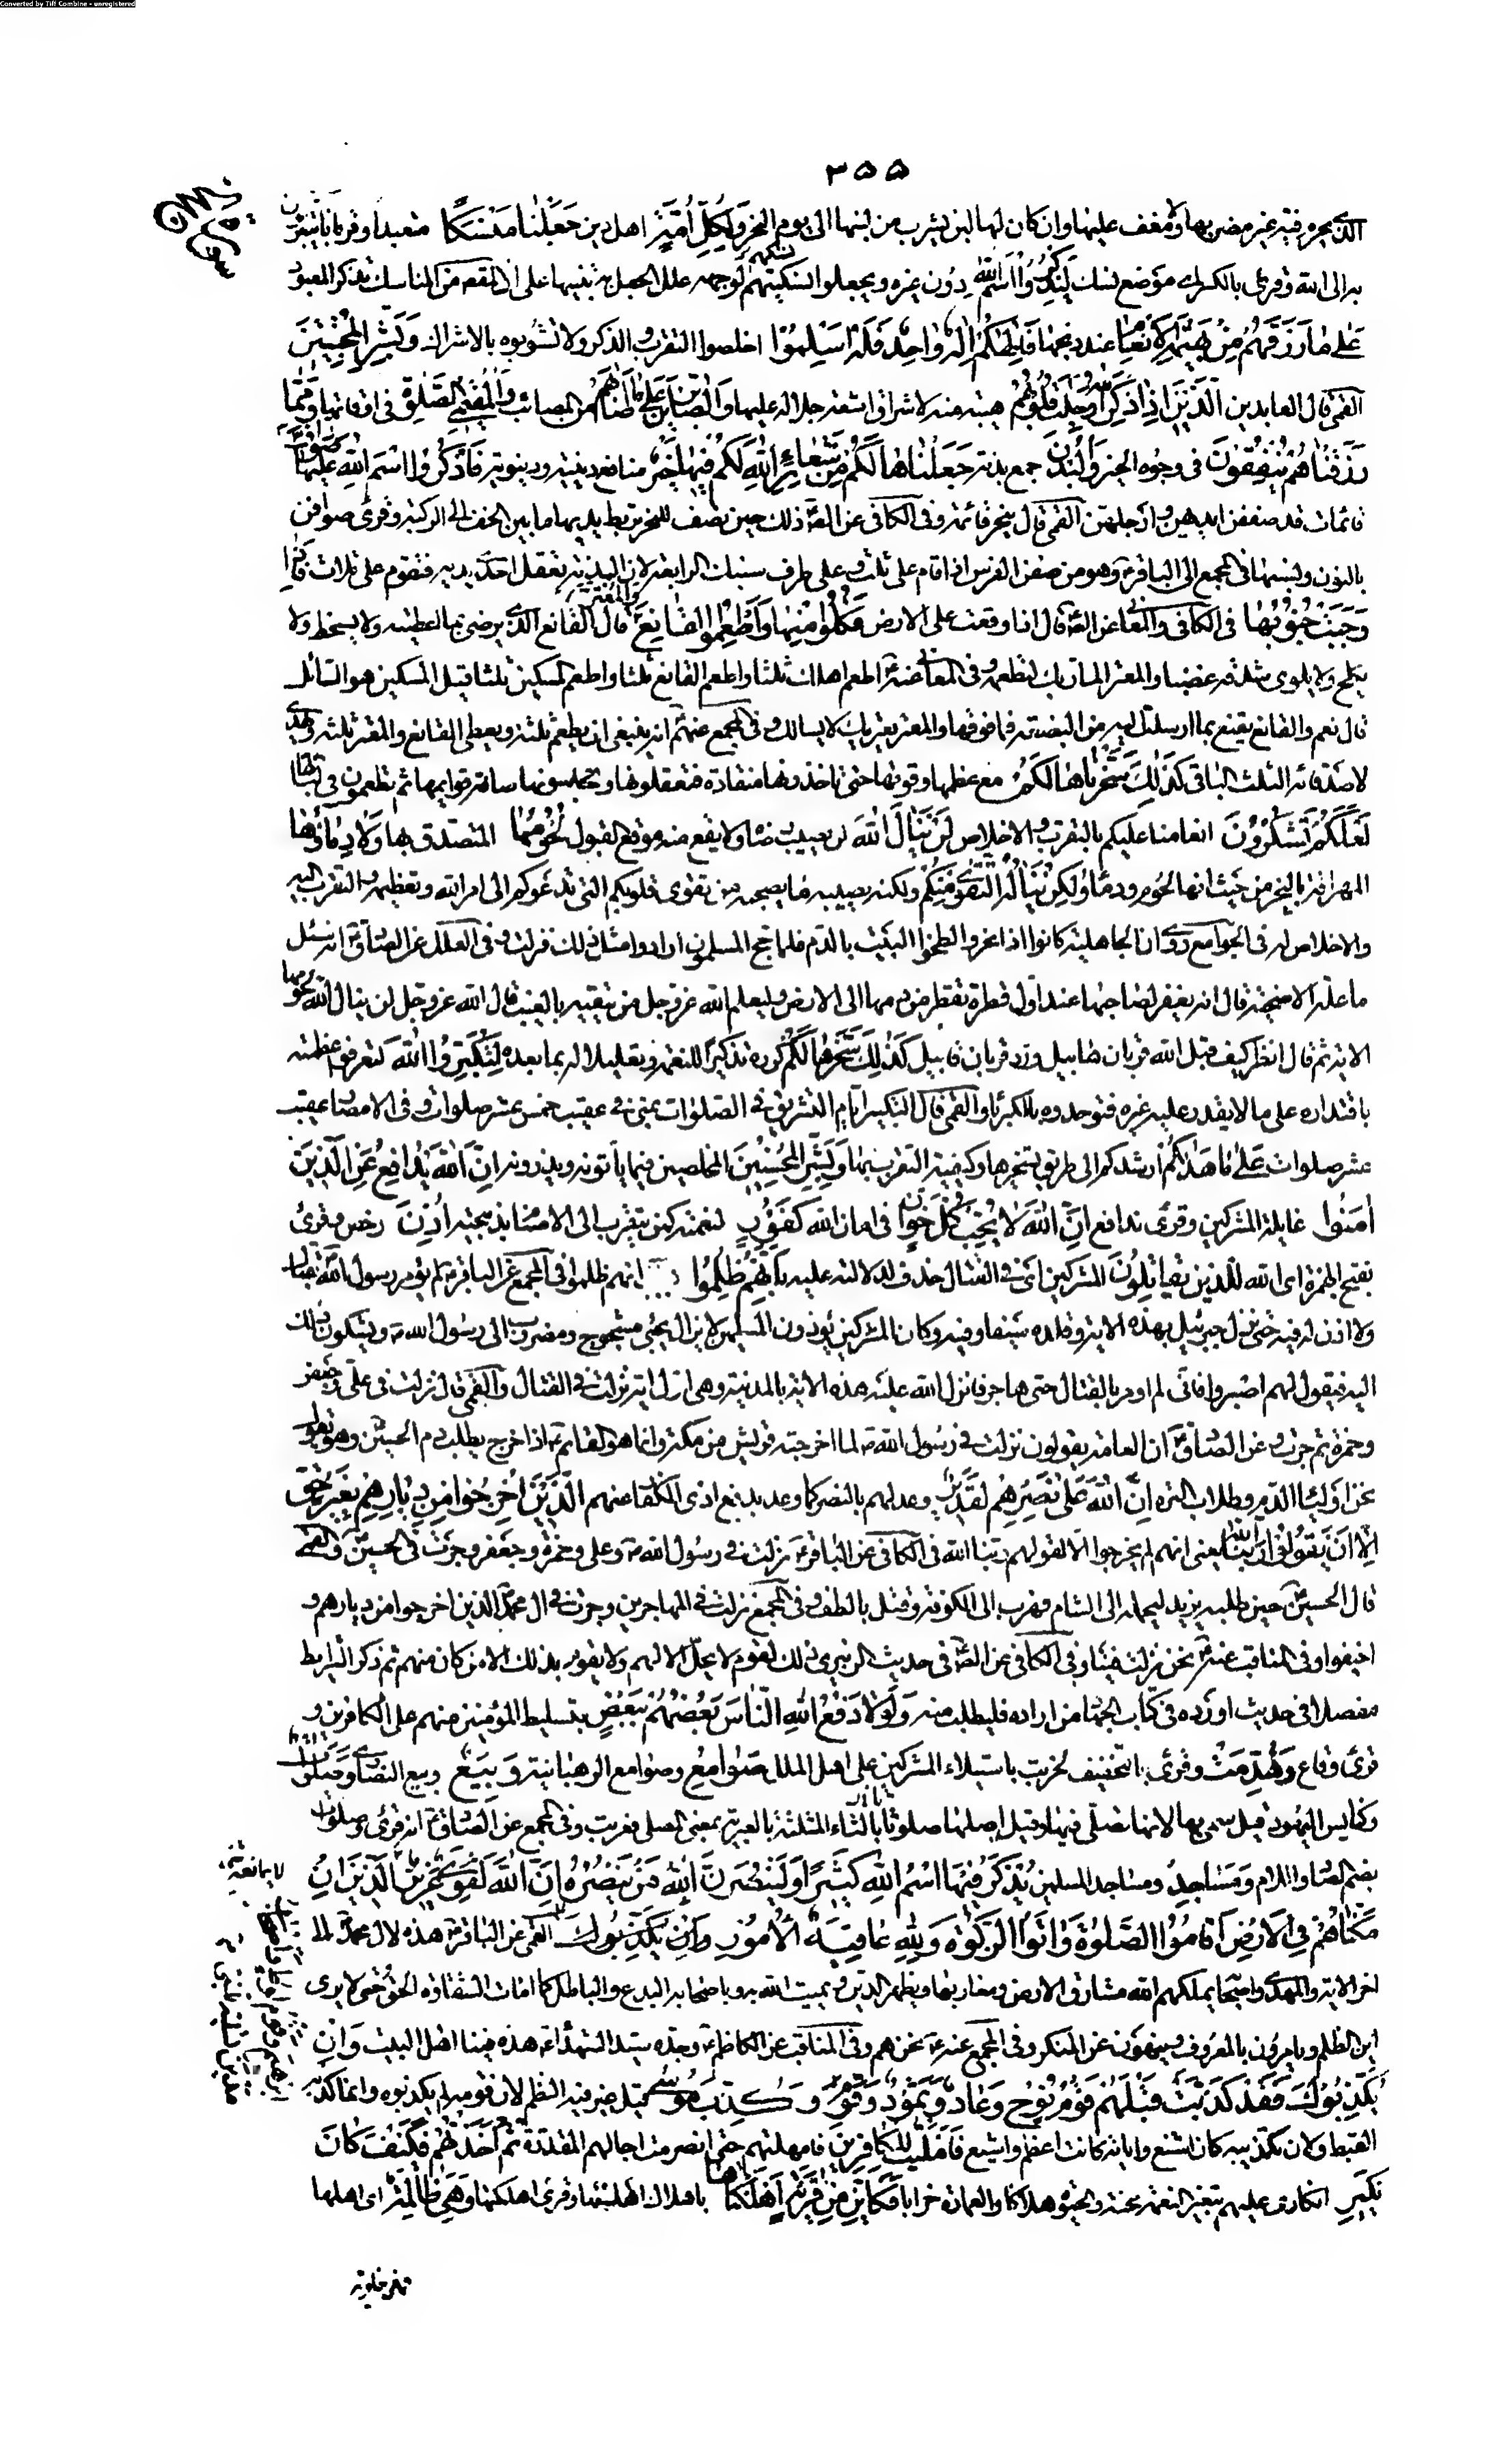 Converted by Tiff Combine - unregistered
۳۵۵
الذی یجره فیه غیر مضر بها ولا مغف علیها وان کان لها لبن یشرب من لبنها الی یوم النحر وَلِکُلِّ اُمَّةٍ اهل دین جَعَلْنا مَنْسَکًا متعبدا وقربانا یتقربون
به الی الله وقرئ بالکسر ای موضع نسک لِیَذْکُرُوا اسْمَ اللهِ دون غیره ویجعلوا نسیکتهم لوجهه علل الجعل به تنبیها علی ان المقصد من المناسک تذکر المعبود
عَلی ما رَزَقَهُمْ مِنْ بَهیمَةِ الْاَنْعامِ عند ذبحها فَاِلهُکُمْ اِلهٌ واحِدٌ فَلَهُ اَسْلِمُوا اخلصوا التقرب والذکر ولا تشوبوه بالاشراک وَبَشِّرِ الْمُخْبِتینَ
القمی قال العابدین اَلَّذینَ اِذا ذُکِرَ اللهُ وَجِلَتْ قُلُوبُهُمْ هیبة منه لاشراق اشعة جلاله علیها وَالصّابِرینَ عَلی ما اَصابَهُمْ من المصائب وَالْمُقیمِی الصَّلوةِ فی اوقاتها وَمِمّا
رَزَقْناهُمْ یُنْفِقُونَ فی وجوه الخیر وَالْبُدْنَ جمع بدنة جَعَلْناها لَکُمْ مِنْ شَعائِرِ اللهِ لَکُمْ فیها خَیْرٌ منافع دینیة ودنیویة فَاذْکُرُوا اسْمَ اللهِ عَلَیْها صَوافَّ
قائمات قد صففن ایدیهن وارجلهن القمی قال ینحر قائمة وفی الکافی عن الصادق ذلک حین تصف للنحر تربط یدیها ما بین الخف الی الرکبة وقرئ صوافن
بالنون ونسبها فی المجمع الی الباقر ع وهو من صفن الفرس اذا قام علی ثلث وعلی طرف سنبک الرابعة لان البدنة تعقل احدی یدیه فتقوم علی ثلاث فَاِذا
وَجَبَتْ جُنُوبُها فی الکافی والمعانی عن الصادق قال اذا وقعت علی الارض فَکُلُوا مِنْها وَاَطْعِمُوا الْقانِعَ وَالْمُعْتَرَّ قال القانع الذی یرضی بما اعطیته ولا یسخط ولا
یکلح ولا یلوی شدقه غضبا والمعتر المار بک لتطعمه وفی المعانی عنه ع اطعم اهلک ثلثا واطعم القانع ثلثا واطعم المسکین ثلثا قیل المسکین هو السائل
قال نعم والقانع یقنع بما ارسلت الیه من البضعة فما فوقها والمعتر یعتریک لا یسالک وفی المجمع عنهم انه ینبغی ان یطعم ثلثه ویعطی القانع والمعتر ثلثه ویهدی
لاصدقائه الثلث الباقی کَذلِکَ سَخَّرْناها لَکُمْ مع عظمها وقوتها حتی تاخذونها منقادة فتعقلوها وتحبسونها صافة قوایمها ثم تطعنون فی لباتها
لَعَلَّکُمْ تَشْکُرُونَ انعامنا علیکم بالتقرب والاخلاص لَنْ یَنالَ اللهَ لن یصیب رضاه ولا یقع منه موقع القبول لُحُومُها المتصدق بها وَلا دِماؤُها
المهراقة بالنحر من حیث انها لحوم ودماء وَلکِنْ یَنالُهُ التَّقْوی مِنْکُمْ ولکنه یصیبه ما یصحبه من تقوی قلوبکم التی تدعوکم الی امر الله وتعظیمه والتقرب الیه
والاخلاص له فی الجوامع روی ان الجاهلیة کانوا اذا نحروا لطخوا البیت بالدم فلما حج المسلمون ارادوا مثل ذلک فنزلت وفی العلل عن الصادق ع انه سئل
ما علة الاضحیة فقال انه یغفر لصاحبها عند اول قطرة تقطر من دمها الی الارض ولیعلم الله عز وجل من یتقیه بالغیب قال الله عز وجل لن ینال الله لحومها
الایة ثم قال انظر کیف قبل الله قربان هابیل ورد قربان قابیل کَذلِکَ سَخَّرَها لَکُمْ کرره تذکیرا للنعمة وتعلیلا له بما بعده لِتُکَبِّرُوا اللهَ لتعرفوا عظمته
باقتداره علی ما لا یقدر علیه غیره فتوحدوه بالکبریاء والقمی قال التکبیر ایام التشریق فی الصلوات بمنی فی عقیب خمس عشر صلوات وفی الامصار عقیب
عشر صلوات عَلی ما هَدیکُمْ ارشدکم الی طریق تسخیرها وکیفیة التقرب بها وَبَشِّرِ الْمُحْسِنینَ المخلصین فیما یأتونه ویذرونه اِنَّ اللهَ یُدافِعُ عَنِ الَّذینَ
امَنُوا غایلة المشرکین وقرئ یدافع اِنَّ اللهَ لا یُحِبُّ کُلَّ خَوّانٍ فی امانة الله کَفُورٍ لنعمته کمن یتقرب الی الاصنام بذبیحته اُذِنَ رخص وقرئ
بفتح الهمزة ای الله لِلَّذینَ یُقاتَلُونَ المشرکین ای فی القتال حذف لدلالته علیه بِاَنَّهُمْ ظُلِمُوا بانهم ظلموا فی المجمع عن الباقر ع لم یؤمر رسول الله بقتال
ولا اذن له فیه حتی نزل جبرئیل بهذه الایة وقلده سیفا وفیه وکان المشرکین یؤذون المسلمین لا یزال یجئ مشجوج ومضروب الی رسول الله ص ویشکون ذلک
الیه فیقول لهم اصبروا فانی لم اومر بالقتال حتی هاجر فانزل الله علیه هذه الایة بالمدینة وهی اول ایة نزلت فی القتال والقمی قال نزلت فی علی وجعفر
وحمزة ثم جرت وعن الصادق ع ان العامة یقولون نزلت فی رسول الله ص لما اخرجته قریش من مکة وانما هو القائم ع اذا خرج یطلب بدم الحسین وهو قوله
نحن اولیاء الدم وطلاب الترة اِنَّ اللهَ عَلی نَصْرِهِمْ لَقَدیرٌ وعد لهم بالنصر کما وعد بدفع اذی الکفار عنهم اَلَّذینَ اُخْرِجُوا مِنْ دِیارِهِمْ بِغَیْرِ حَقٍّ
اِلّا اَنْ یَقُولُوا رَبُّنَا اللهُ یعنی انهم لم یخرجوا الا لقولهم ربنا الله فی الکافی عن الباقر ع نزلت فی رسول الله ص وعلی وحمزة وجعفر وجرت فی الحسین والقمی
قال الحسین ع حین طلبه یزید لیحمله الی الشام فهرب الی الکوفة وقتل بالطف وفی المجمع نزلت فی المهاجرین وجرت فی ال محمد الذین اخرجوا من دیارهم و
اخیفوا وفی المناقب عنه ع نحن نزلت فینا وفی الکافی عن الصادق فی حدیث الزبیری ذلک لقوم لا یحل الا لهم ولا یقوم بذلک الا من کان منهم ثم ذکر الشرایط
مفصلا فی حدیث اورده فی کتاب الجهاد من اراده فلیطلب منه وَلَوْلا دَفْعُ اللهِ النّاسَ بَعْضَهُمْ بِبَعْضٍ بتسلیط المؤمنین منهم علی الکافرین و
قرئ دفاع وَهُدِّمَتْ وقرئ بالتخفیف لخربت باستیلاء المشرکین علی اهل الملل صَوامِعُ وصوامع الرهبانیة وَبِیَعٌ وبیع النصاری وَصَلَواتٌ
وکنایس الیهود قیل سمی بها لانها تصلی فیها وقیل اصلها صلوثا بالثاء المثلثة بالعبریة بمعنی المصلی فعربت وفی المجمع عن الصادق ع انه قرئ وصلوات
بضم الصاد واللام وَمَساجِدُ ومساجد المسلمین یُذْکَرُ فیهَا اسْمُ اللهِ کَثیرًا وَلَیَنْصُرَنَّ اللهُ مَنْ یَنْصُرُهُ اِنَّ اللهَ لَقَوِیٌّ عَزیزٌ اَلَّذینَ اِنْ
مَکَّنّاهُمْ فِی الْاَرْضِ اَقامُوا الصَّلوةَ وَاتَوُا الزَّکوةَ وَلِلّهِ عاقِبَةُ الْاُمُورِ وَاِنْ یُکَذِّبُوکَ القمی عن الباقر ع هذه لال محمد الی
اخر الایة والمهدی واصحابه یملکهم الله مشارق الارض ومغاربها ویظهر الدین ویمیت الله به وباصحابه البدع والباطل کما امات السفهاء الحق حتی لا یری
این الظلم ویامرون بالمعروف وینهون عن المنکر وفی المجمع عنه ع نحن هم وفی المناقب عن الکاظم ع وجده سید الشهداء ع هذه فینا اهل البیت وَاِنْ
یُکَذِّبُوکَ فَقَدْ کَذَّبَتْ قَبْلَهُمْ قَوْمُ نُوحٍ وَعادٌ وَثَمُودُ وَقَوْمُ وَکُذِّبَ مُوسی قیل غیر فیه النظم لان قومه لم یکذبوه وانما کذبه
القبط ولان تکذیبه کان اشنع وایاته کانت اعظم واشیع فَاَمْلَیْتُ لِلْکافِرینَ فامهلتهم حتی انصرمت اجالهم المقدرة ثُمَّ اَخَذْتُهُمْ فَکَیْفَ کانَ
نَکیرِ انکاری علیهم بتغییر النعمة محنة والحیوة هلاکا والعمارة خرابا فَکَاَیِّنْ مِنْ قَرْیَةٍ اَهْلَکْناها باهلاک اهلها وقرئ اهلکتها وَهِیَ ظالِمَةٌ ای اهلها